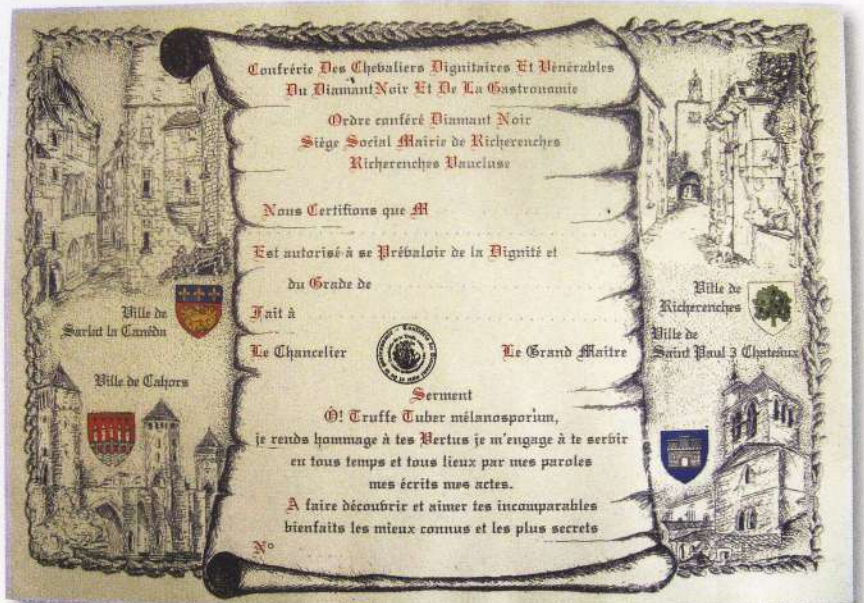 Confrérie Des Chevaliers Dignitaires Et Vénérables
Du Diamant Noir Et De La Gastronomie
Ordre conféré Diamant Noir
Siège Social Mairie de Richerenches
Richerenches Vaucluse
Nous Certifions que M
Est autorisé à se Prévaloir de la Dignité et
du Grade de
Fait à
Le Chancelier
Le Grand Maître
Serment
Ô! Truffe Tuber mélanosporum,
je rends hommage à tes Vertus je m'engage à te servir
en tous temps et tous lieux par mes paroles
mes écrits mes actes.
A faire découvrir et aimer tes incomparables
bienfaits les mieux connus et les plus secrets
N°
Ville de
Sarlat la Canéda
Ville de Cahors
Ville de
Richerenches
Ville de
Saint Paul 3 Chateaux